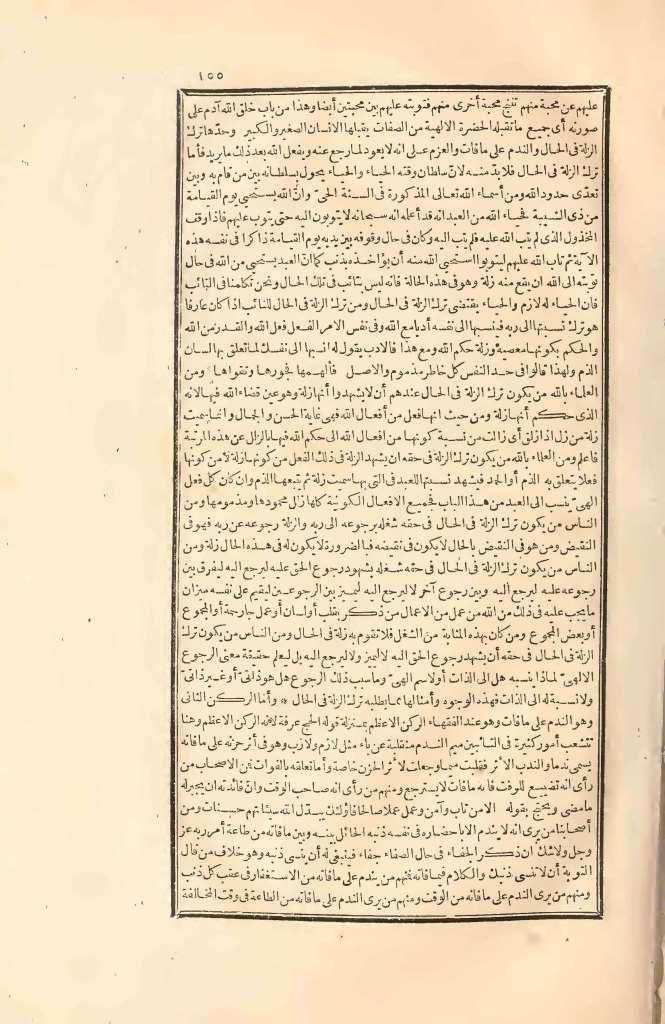 ١٥٥
عليهم عن محبة منهم تنتج محبة أخرى منهم فتوبته عليهم بين محبتين أيضا وهذا من باب خلق الله آدم على
صورته أى جميع ما تقبله الحضرة الالهية من الصفات يقبلها الانسان الصغير والكبير وحدّها ترك
الزلة فى الحال والندم على ما فات والعزم على انه لا يعود لما رجع عنه ويفعل الله بعد ذلك ما يريد فأما
ترك الزلة فى الحال فلا بدّ منه لانّ سلطان وقته الحياء والحياء يحول بسلطانه بين من قام به وبين
تعدّى حدود الله ومن أسماء الله تعالى المذكورة فى السنة الحيىّ وانّ الله يستحيى يوم القيامة
من ذى الشيبة فحياء الله من العبد انه قد أعلمه انه سبحانه لا يتوبون اليه حتى يتوب عليهم فاذا وقف
المخذول الذى لم يتب الله عليه فلم يتب اليه وكان فى حال وقوفه بين يديه يوم القيامة ذاكرا فى نفسه هذه
الآية ثم تاب الله عليهم ليتوبوا استحيى الله منه أن يؤاخذه بذنب كما انّ العبد يستحيى من الله فى حال
توبته الى الله ان يقع منه زلة وهو فى هذه الحالة فانه ليس بتائب فى تلك الحال ونحن تكلمنا فى التائب
فان الحياء له لازم والحياء يقتضى ترك الزلة فى الحال ومن ترك الزلة فى الحال للتائب اذا كان عارفا
هو ترك نسبتها الى ربه فينسبها الى نفسه أدبا مع الله وفى نفس الامر الفعل فعل الله والقدر من الله
والحكم بكونها معصية وزلة حكم الله ومع هذا فالادب يقول له انسبها الى نفسك لما تعلق بها لسان
الذم ولهذا قالوا فى حد النفس كل خاطر مذموم والاصل فألهمها فجورها وتقواها ومن
العلماء بالله من يكون ترك الزلة فى الحال عندهم أن لا يشهدوا أنها زلة وهو عين قضاء الله فيها لانه
الذى حكم أنها زلة ومن حيث انها فعل من أفعال الله فهى غاية الحسن والجمال وانما سميت
زلة من زل اذا زلق أى زالت من نسبة كونها من افعال الله الى حكم الله فيها بالزال عن هذه المرتبة
فاعلم ومن العلماء بالله من يكون ترك الزلة فى حقه ان يشهد الزلة فى ذلك الفعل من كونها زلة لا من كونها
فعلا يتعلق به الذم أو الحد فيشهد نسبتها للعبد فى التى بها سميت زلة ثم يتبعها الذم وان كان كل فعل
الهىّ ينسب الى العبد من هذا الباب فجميع الافعال الكونية كلها زلل محمودها ومذمومها ومن
الناس من يكون ترك الزلة فى الحال فى حقه شغله برجوعه الى ربه والزلة رجوعه عن ربه فهو فى
النقيض ومن هو فى النقيض بالحال لا يكون فى نقيضه فبالضرورة لا يكون له فى هذه الحال زلة ومن
الناس من يكون ترك الزلة فى الحال فى حقه شغله بشهود رجوع الحق عليه ليرجع اليه ليفرق بين
رجوعه عليه ليرجع اليه وبين رجوع آخر لا ليرجع اليه ليميز بين الرجوعين ليقيم على نفسه ميزان
ما يجب عليه فى ذلك من الله من عمل من الاعمال من ذكر بقلب أو لسان أو عمل جارحة أو المجموع
أو بعض المجموع ومن كان بهذه المثابة من الشغل فلا تقوم به زلة فى الحال ومن الناس من يكون ترك
الزلة فى الحال فى حقه أن يشهد رجوع الحق اليه لا ليميز ولا ليرجع اليه بل ليعلم حقيقة معنى الرجوع
الالهىّ لماذا ينسبه هل الى الذات أو لاسم الهىّ وما سبب ذلك الرجوع هل هو ذاتىّ أو غير ذاتىّ
ولا نسبة له الى الذات فهذه الوجوه وأمثالها مما يطلبه ترك الزلة فى الحال * وأما الركن الثانى
وهو الندم على ما فات وهو عند الفقهاء الركن الاعظم بمنزلة قوله الحج عرفة لانه الركن الاعظم وهنا
تتشعب أمور كثيرة فى التائبين ميم الندم منقلبة عن باء مثل لازم ولازب وهو فى أثر حزنه على ما فاته
يسمى ندما والندب الاثر فقلبت ميما وجعلت لاثر الحزن خاصة وأما تعلقه بالفوات فمن الاصحاب من
رأى انه تضييع للوقت فانه ما فات لا يسترجع ومنهم من رأى انه صاحب الوقت وانّ فائدته ان يجبر له
ما مضى ويحتج بقوله الا من تاب وآمن وعمل عملا صالحا فأولئك يبدّل الله سيئاتهم حسنات ومن
أصحابنا من يرى انه لا يندم الا باحضاره فى نفسه ذنبه الحائل بينه وبين ما فاته من طاعة أمر ربه عز
وجل ولا شك ان ذكر الجفاء فى حال الصفاء جفاء فينبغى له أن ينسى ذنبه وهو خلاف من قال
التوبة أن لا تنسى ذنبك والكلام فيما فاته فمنهم من يندم على ما فاته من الاستغفار فى عقب كل ذنب
ومنهم من يرى الندم على ما فاته من الوقت ومنهم من يرى الندم على ما فاته من الطاعة فى وقت المخالفة